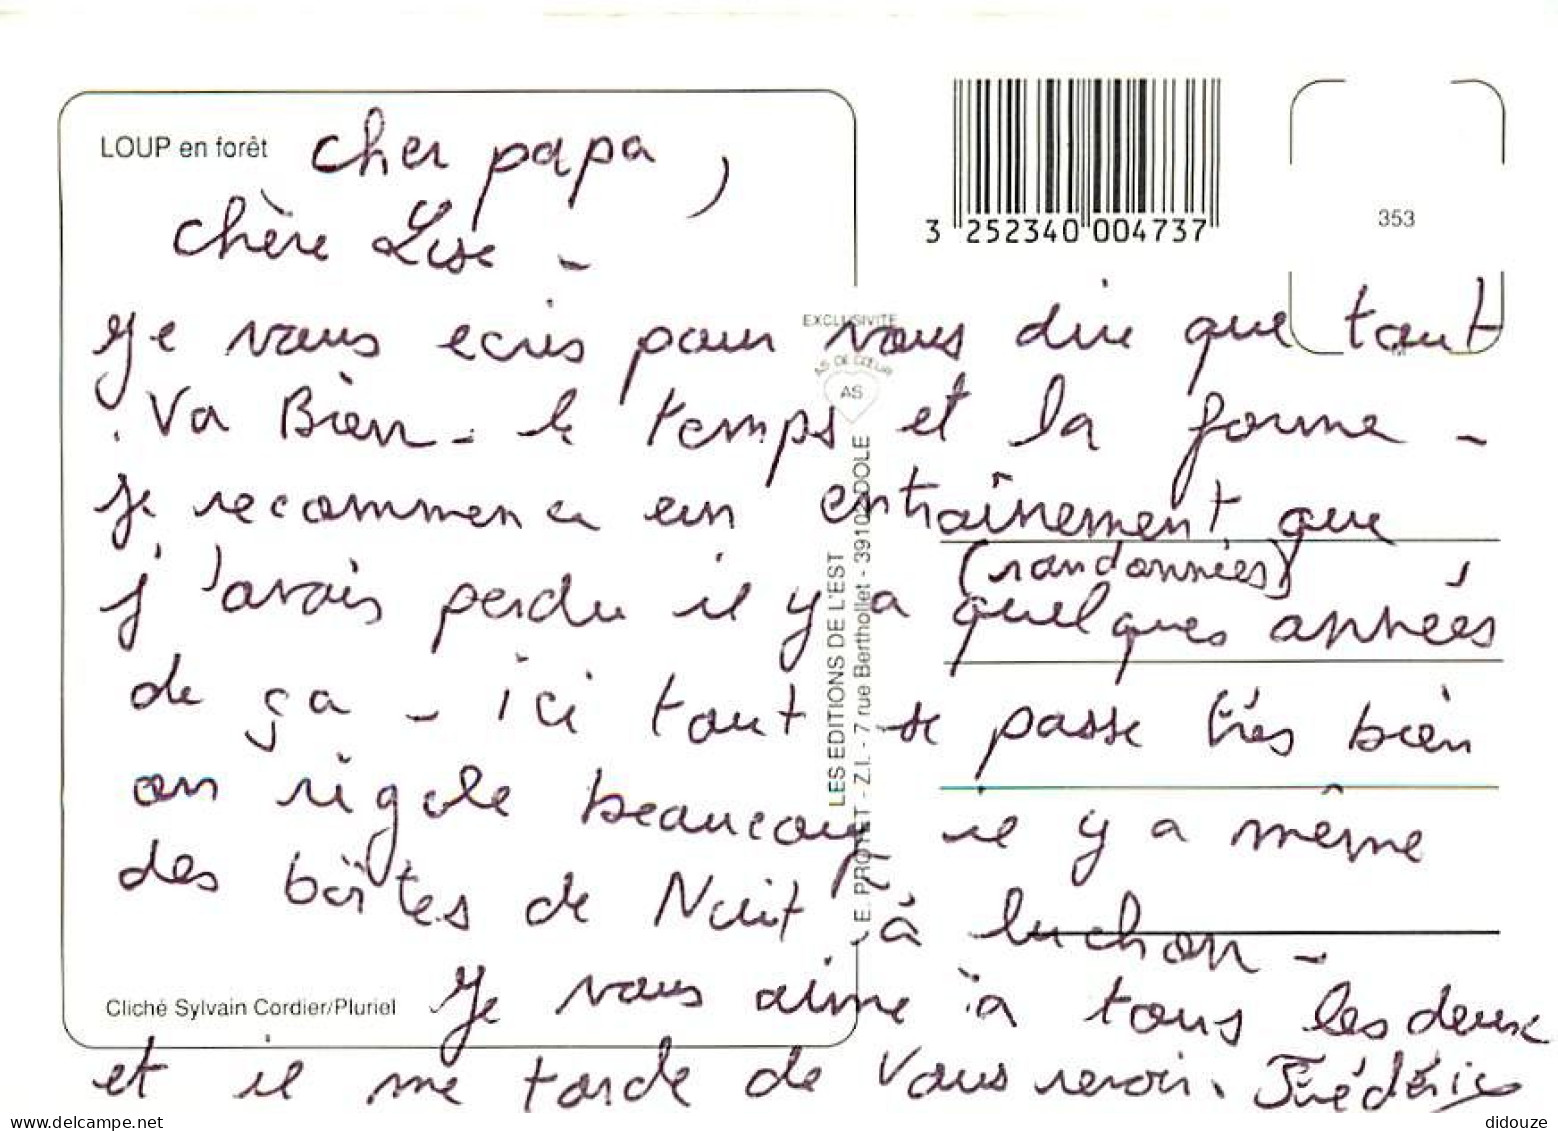 LOUP en forêt
Cher papa,
chère Lise -
3 252340 004737
353
EXCLUSIVITE
AS DE CŒUR
AS
LES EDITIONS DE L'EST
E. PROTET - Z.I. - 7 rue Berthollet - 39102 DOLE
Je vous ecris pour vous dire que tout
Va Bien - le temps et la forme -
je recommence un entraînement que
(randonnées)
j'avais perdu il y a quelques années
de ça - ici tout se passe très bien
on rigole beaucoup il y a même
des boîtes de Nuit à luchon -
Je vous aime à tous les deux
et il me tarde de Vous revoir. Frédéric
Cliché Sylvain Cordier/Pluriel
delcampe.net
didouze